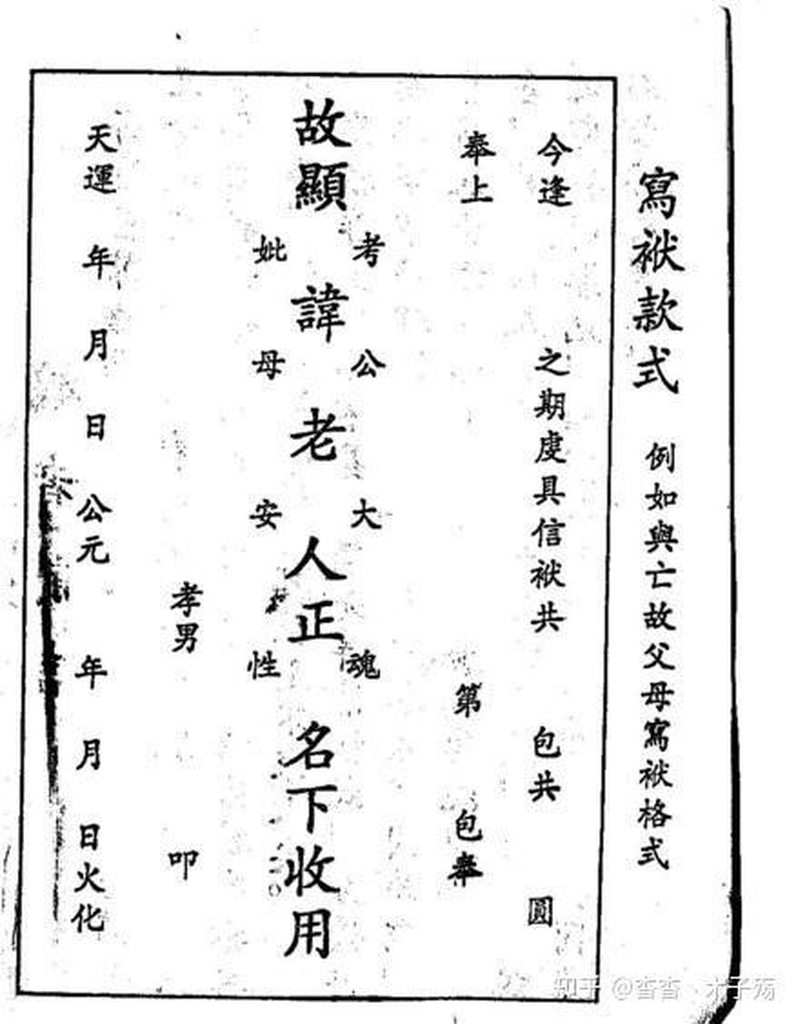 寫袱款式 例如與亡故父母寫袱格式
今逢 之期虔具信袱共 包共 圓
奉上 第 包奉
考 公 大 魂
故顯 諱 老 人正 名下收用
妣 母 安 性
孝男 叩
天運 年 月 日 公元 年 月 日火化
知乎 @杳杳